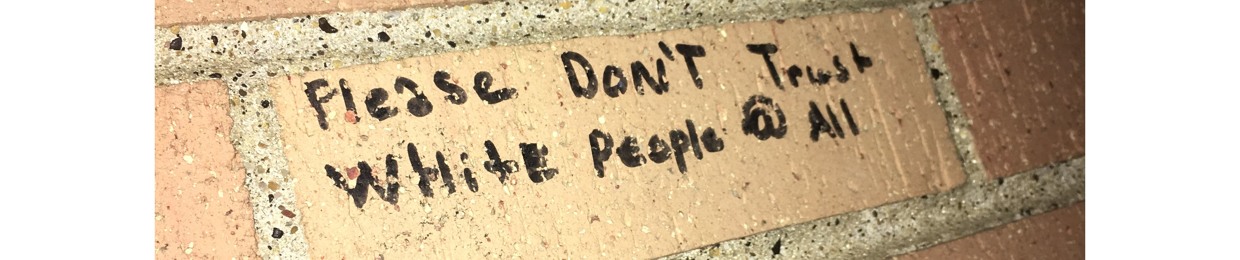 Please Don't Trust
White People @ All